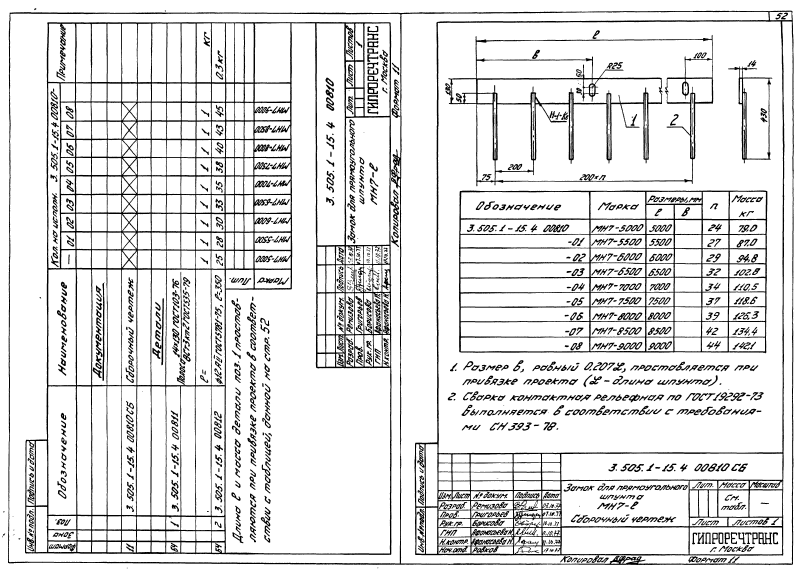 52
Формат
Зона
Поз.
Обозначение
Наименование
Кол. на исполн. 3.505.1-15.4 00810-
Примечание
— 01 02 03 04 05 06 07 08
Документация
11 3.505.1-15.4 00810 СБ Сборочный чертеж
Детали
Б4 1 3.505.1-15.4 00811
ℓ= 1 1 1 1 1 1 1 1 1 кг
Б4 2 3.505.1-15.4 00812 25 28 30 33 35 38 40 43 45 0.3 кг
Марка
МН7-5000 МН7-5500 МН7-6000 МН7-6500 МН7-7000 МН7-7500 МН7-8000 МН7-8500 МН7-9000
Лит.
Длина ℓ и масса детали поз. 1 простав-
ляются при привязке проекта в соответ-
ствии с таблицей, данной на стр. 52
3.505.1-15.4 00810
Замок для прямоугольного
шпунта
МН7-ℓ
Лит. Лист Листов
1
ГИПРОРЕЧТРАНС
г. Москва
Изм. Лист № докум. Подпись Дата
Разраб. Ремизова
Пров. Григорьев
Рук. гр. Борисова
ГИП Афанасьева Н.
Н. контр. Афанасьева Н.
Копировал
Формат 11
Инв. № подл. Подпись и дата
ℓ
в
R25
100
14
50
50
430
200
75
200×n
1
2
Обозначение Марка Размеры, мм n Масса кг
ℓ В
3.505.1-15.4 00810 МН7-5000 5000 24 79.0
-01 МН7-5500 5500 27 87.0
-02 МН7-6000 6000 29 94.8
-03 МН7-6500 6500 32 102.8
-04 МН7-7000 7000 34 110.5
-05 МН7-7500 7500 37 118.6
-06 МН7-8000 8000 39 126.3
-07 МН7-8500 8500 42 134.4
-08 МН7-9000 9000 44 142.1
1. Размер в, равный 0.207L, проставляется при
привязке проекта (L - длина шпунта).
2. Сварка контактная рельефная по ГОСТ 19292-73
выполняется в соответствии с требования-
ми СН 393-78.
3.505.1-15.4 00810 СБ
Замок для прямоугольного
шпунта
МН7-ℓ
Сборочный чертеж
Лит. Масса Масштаб
См. табл. —
Лист Листов 1
ГИПРОРЕЧТРАНС
г. Москва
Изм. Лист № докум. Подпись Дата
Разраб. Ремизова
Пров. Григорьев
Рук. гр. Борисова
ГИП Афанасьева Н.
Н. контр. Афанасьева Н.
Нач. отд.
Инв. № подл. Подпись и дата
Копировал
Формат 11